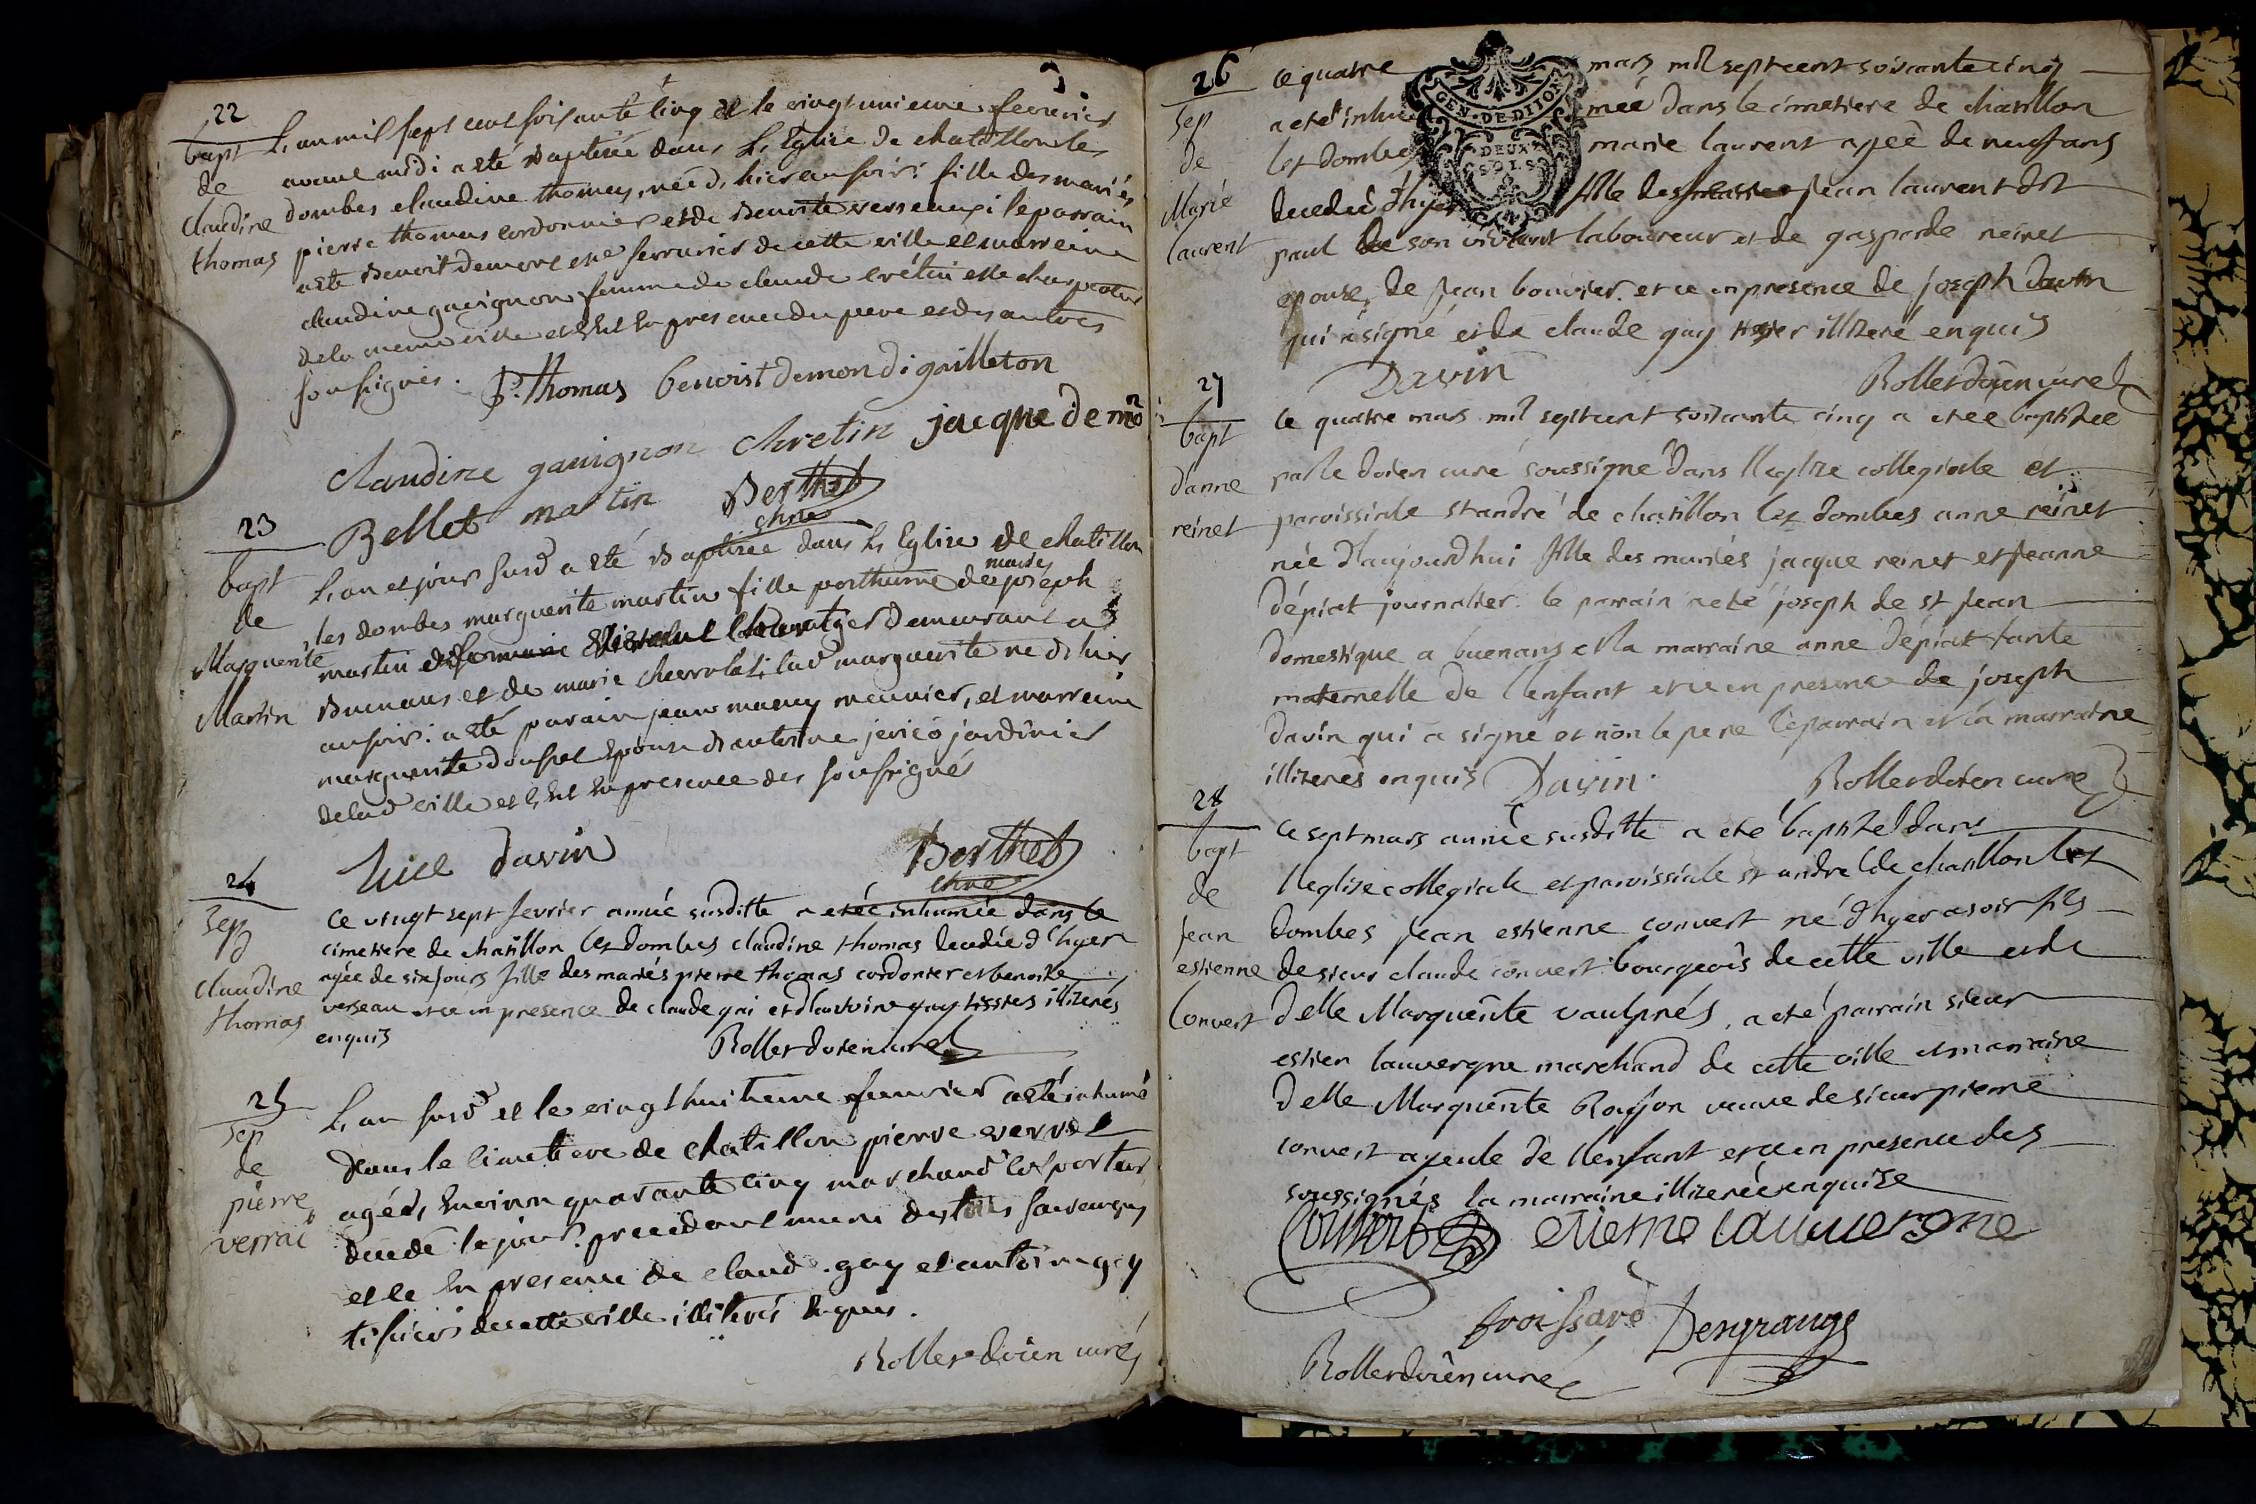 22
bapt
de
claudine
thomas
L'an mil sept cent soisante cinq et le vingtunieme fevrier
avant midi a eté baptisée dans L'Eglise de chatillon les
dombes claudine thomas, née d'hier au soir: fille des mariés
pierre thomas cordonnier et de Benoite verseau: le parrain
a eté Benoit demont serrurier de cette ville et marreine
claudine gavignon femme de claude crétin charpentier
de la meme ville et en presence du pere et des autres
sousignés.
P. thomas benoist demondi gailleton
claudine gavignon chretin jacque demon
Bellet martin Berthet
chne
23
bapt
de
Marguerite
Martin
L'an et jour susd a eté baptisée dans L'Eglise de chatillon
les dombes marguerite martin fille posthume des mariés joseph
martin demeurant a
Buenans et de marie chevrolat: lad marguerite née d'hier
au soir: a eté parain jean mauny meunier, et marreine
marguerite epouse d'antoine jerico jardinier
de lad ville et en presence des sousignés
davin Berthet
chne
24
sep
d
claudine
thomas
Ce vingt sept fevrier année susditte a etée inhumée dans le
cimetiere de chatillon les dombes claudine thomas decedée d'hyer
agée de six jours fille des mariés pierre thomas cordonier et benoite
verseau et ce en presence de claude gai et d'antoine guy tissiers illiterés
enquis
Roller doien curé
25
sep
de
pierre
verrai
L'an susd et le vingt huitieme fevrier a eté inhumé
dans le cimetiere de chatillon pierre
agé d'environ quarante cinq marchand colporteur
decedé le jour precedent muni des
et ce en presence de claude gay et antoine gay
tissiers de cette ville illiterés enquis.
Roller doien curé
26
sep
de
Marie
laurent
ce quatre mars mil septcent soixante cinq
a eté inhumée dans le cimetiere de chatillon
les dombes marie laurent agée de neuf ans
decedée d'hyer fille des jean laurent dit
paul de son vivant laboureur et de gasparde reinet
epouse de jean bouvier et ce en presence de joseph davin
qui a signé et de claude guy tissier illiteré enquis
Davin Roller doien curé
GEN. DE DIJON
DEUX
SOLS
27
bapt
d'anne
reinet
Ce quatre mars mil septcent soixante cinq a etée baptisée
par le doien curé soussigné dans l'eglise collegiale et
paroissiale st andré de chatillon les dombes anne reinet
née d'aujourdhui fille des mariés jacque reinet et jeanne
dépiat journalier. le parrain a eté joseph de st jean
domestique a buenans et la marraine anne dépiat tante
maternelle de l'enfant et ce en presence de joseph
davin qui a signé et non le pere le parrain et la marraine
illiterés enquis Davin. Roller doien curé
28
bapt
de
jean
estienne
Convert
Ce sept mars année susditte a eté baptisé dans
l'eglise collegiale et paroissiale st andré de chatillon les
dombes jean estienne convert né d'hyer au soir fils
de sieur claude convert bourgeois de cette ville et de
delle Marguerite vaulprés, a eté parrain sieur
estien lauvergne marchand de cette ville et marraine
delle Marguerite veuve de sieur pierre
convert ayeule de l'enfant et ce en presence des
soussignés la marraine illiterée enquise
Convert etiene lauvuergne
froissard Desgranges
Roller doien curé